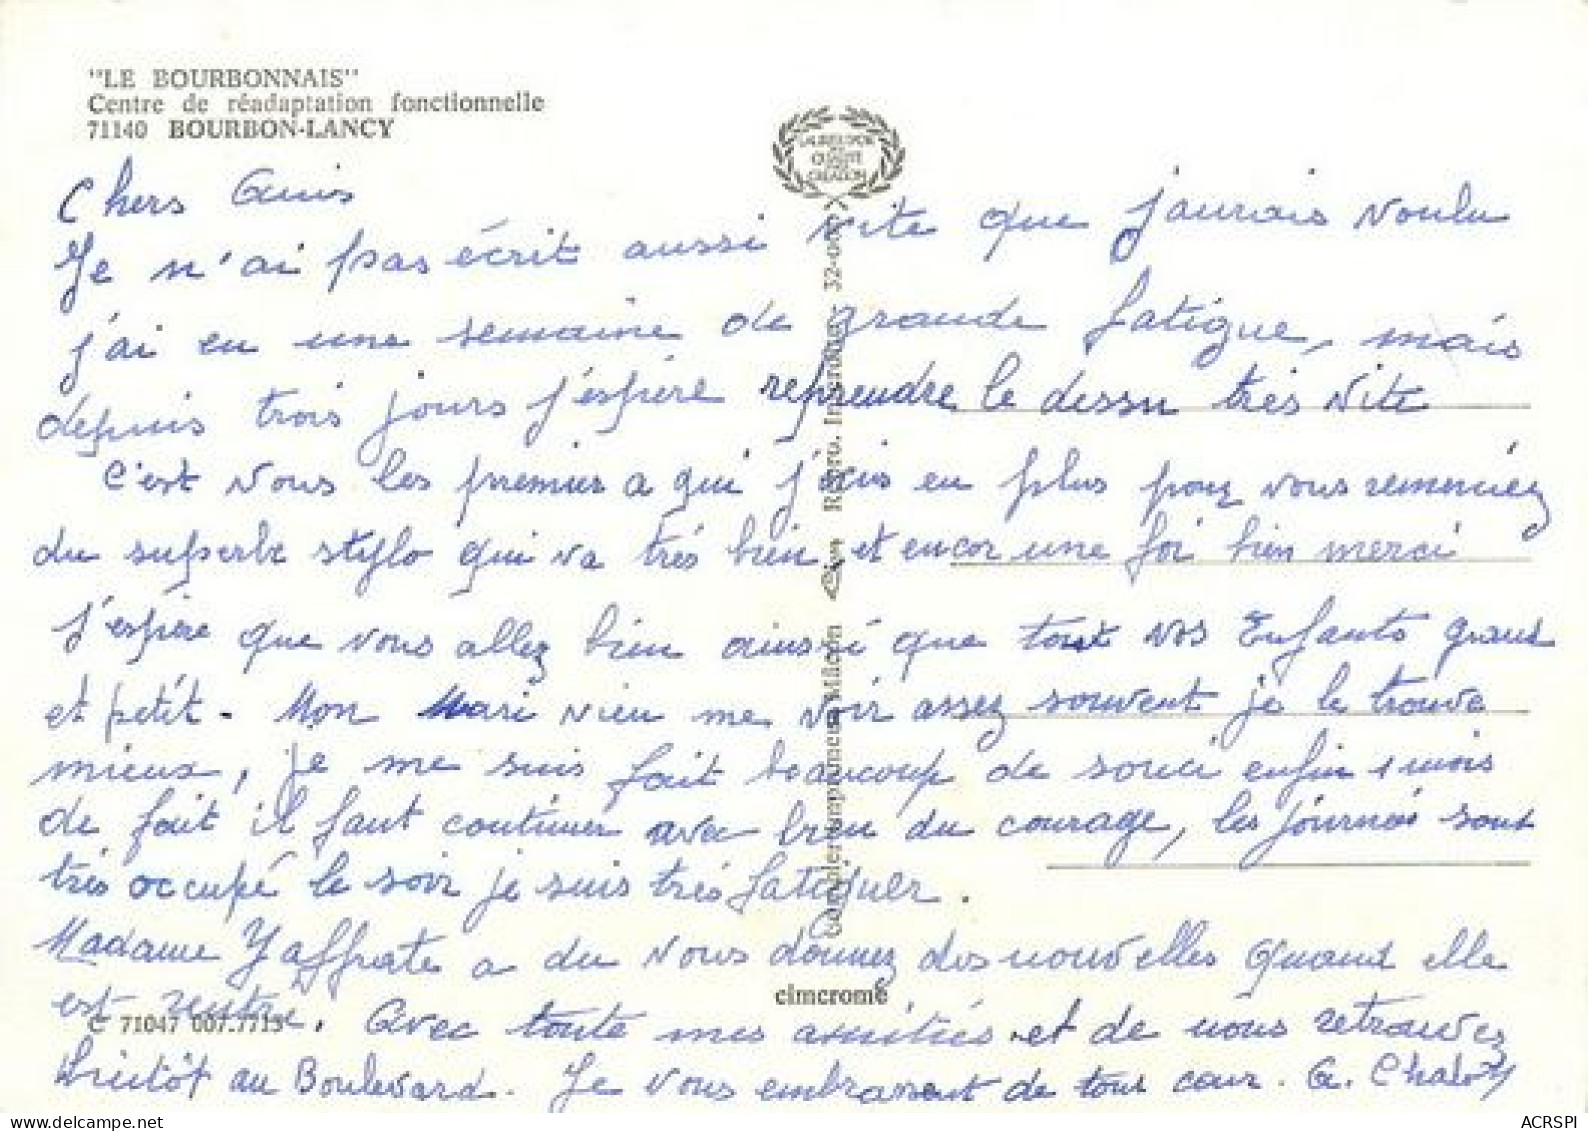 "LE BOURBONNAIS"
Centre de réadaptation fonctionnelle
71140 BOURBON-LANCY
Chers Amis
Je n'ai pas écrit aussi vite que j'aurais voulu
j'ai eu une semaine de grande fatigue, mais
depuis trois jours j'espère reprendre le dessu très vite
C'est vous les premier a qui j'écris en plus pour vous remerciez
du superbe stylo qui va très bien et encor une foi bien merci
J'espère que vous allez bien ainsi que tout vos Enfants grand
et petit - Mon Mari vien me voir assez souvent je le trouve
mieux, je me suis fait beaucoup de souci enfin 1 mois
de fait il faut continuer avec bien du courage, les journé sont
très occupé le soir je suis très fatiguer.
Madame a du vous donnez des nouvelles quand elle
est rentré. Avec toute mes amitiés et de vous retrouvez
bientôt au Boulevard. Je vous embrassent de tout cœur. G.
LAURIERS D'OR
DE LA
QUALITÉ
CRÉATION
Combier imprimeur Mâcon
Repro. Interdite - 32-00
cimcrome
C 71047 007.7713
ACRSPI